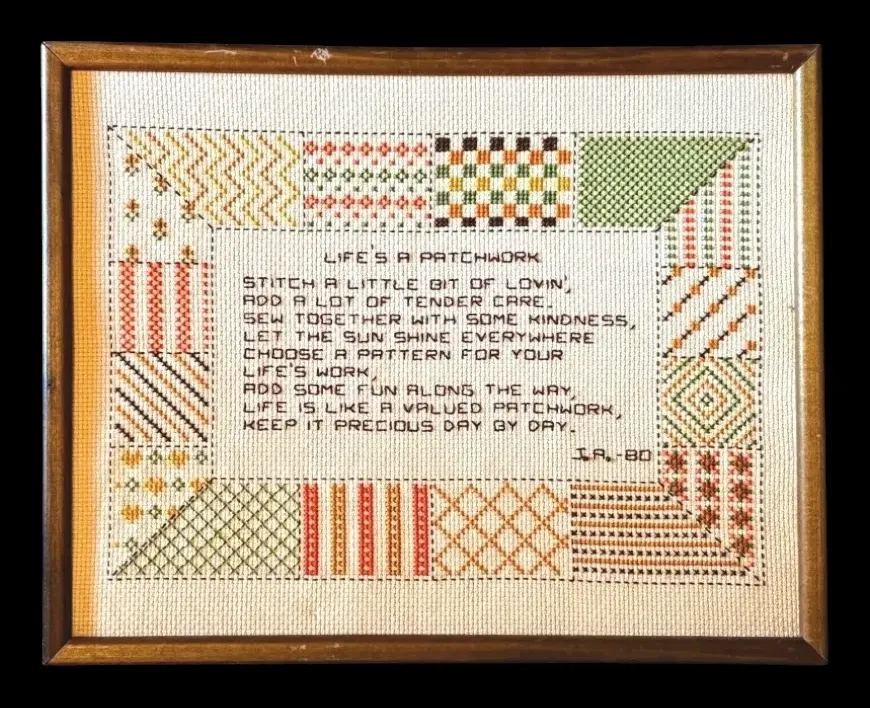 LIFE'S A PATCHWORK
STITCH A LITTLE BIT OF LOVIN',
ADD A LOT OF TENDER CARE.
SEW TOGETHER WITH SOME KINDNESS,
LET THE SUN SHINE EVERYWHERE
CHOOSE A PATTERN FOR YOUR
LIFE'S WORK,
ADD SOME FUN ALONG THE WAY,
LIFE IS LIKE A VALUED PATCHWORK,
KEEP IT PRECIOUS DAY BY DAY.
J.A.-80